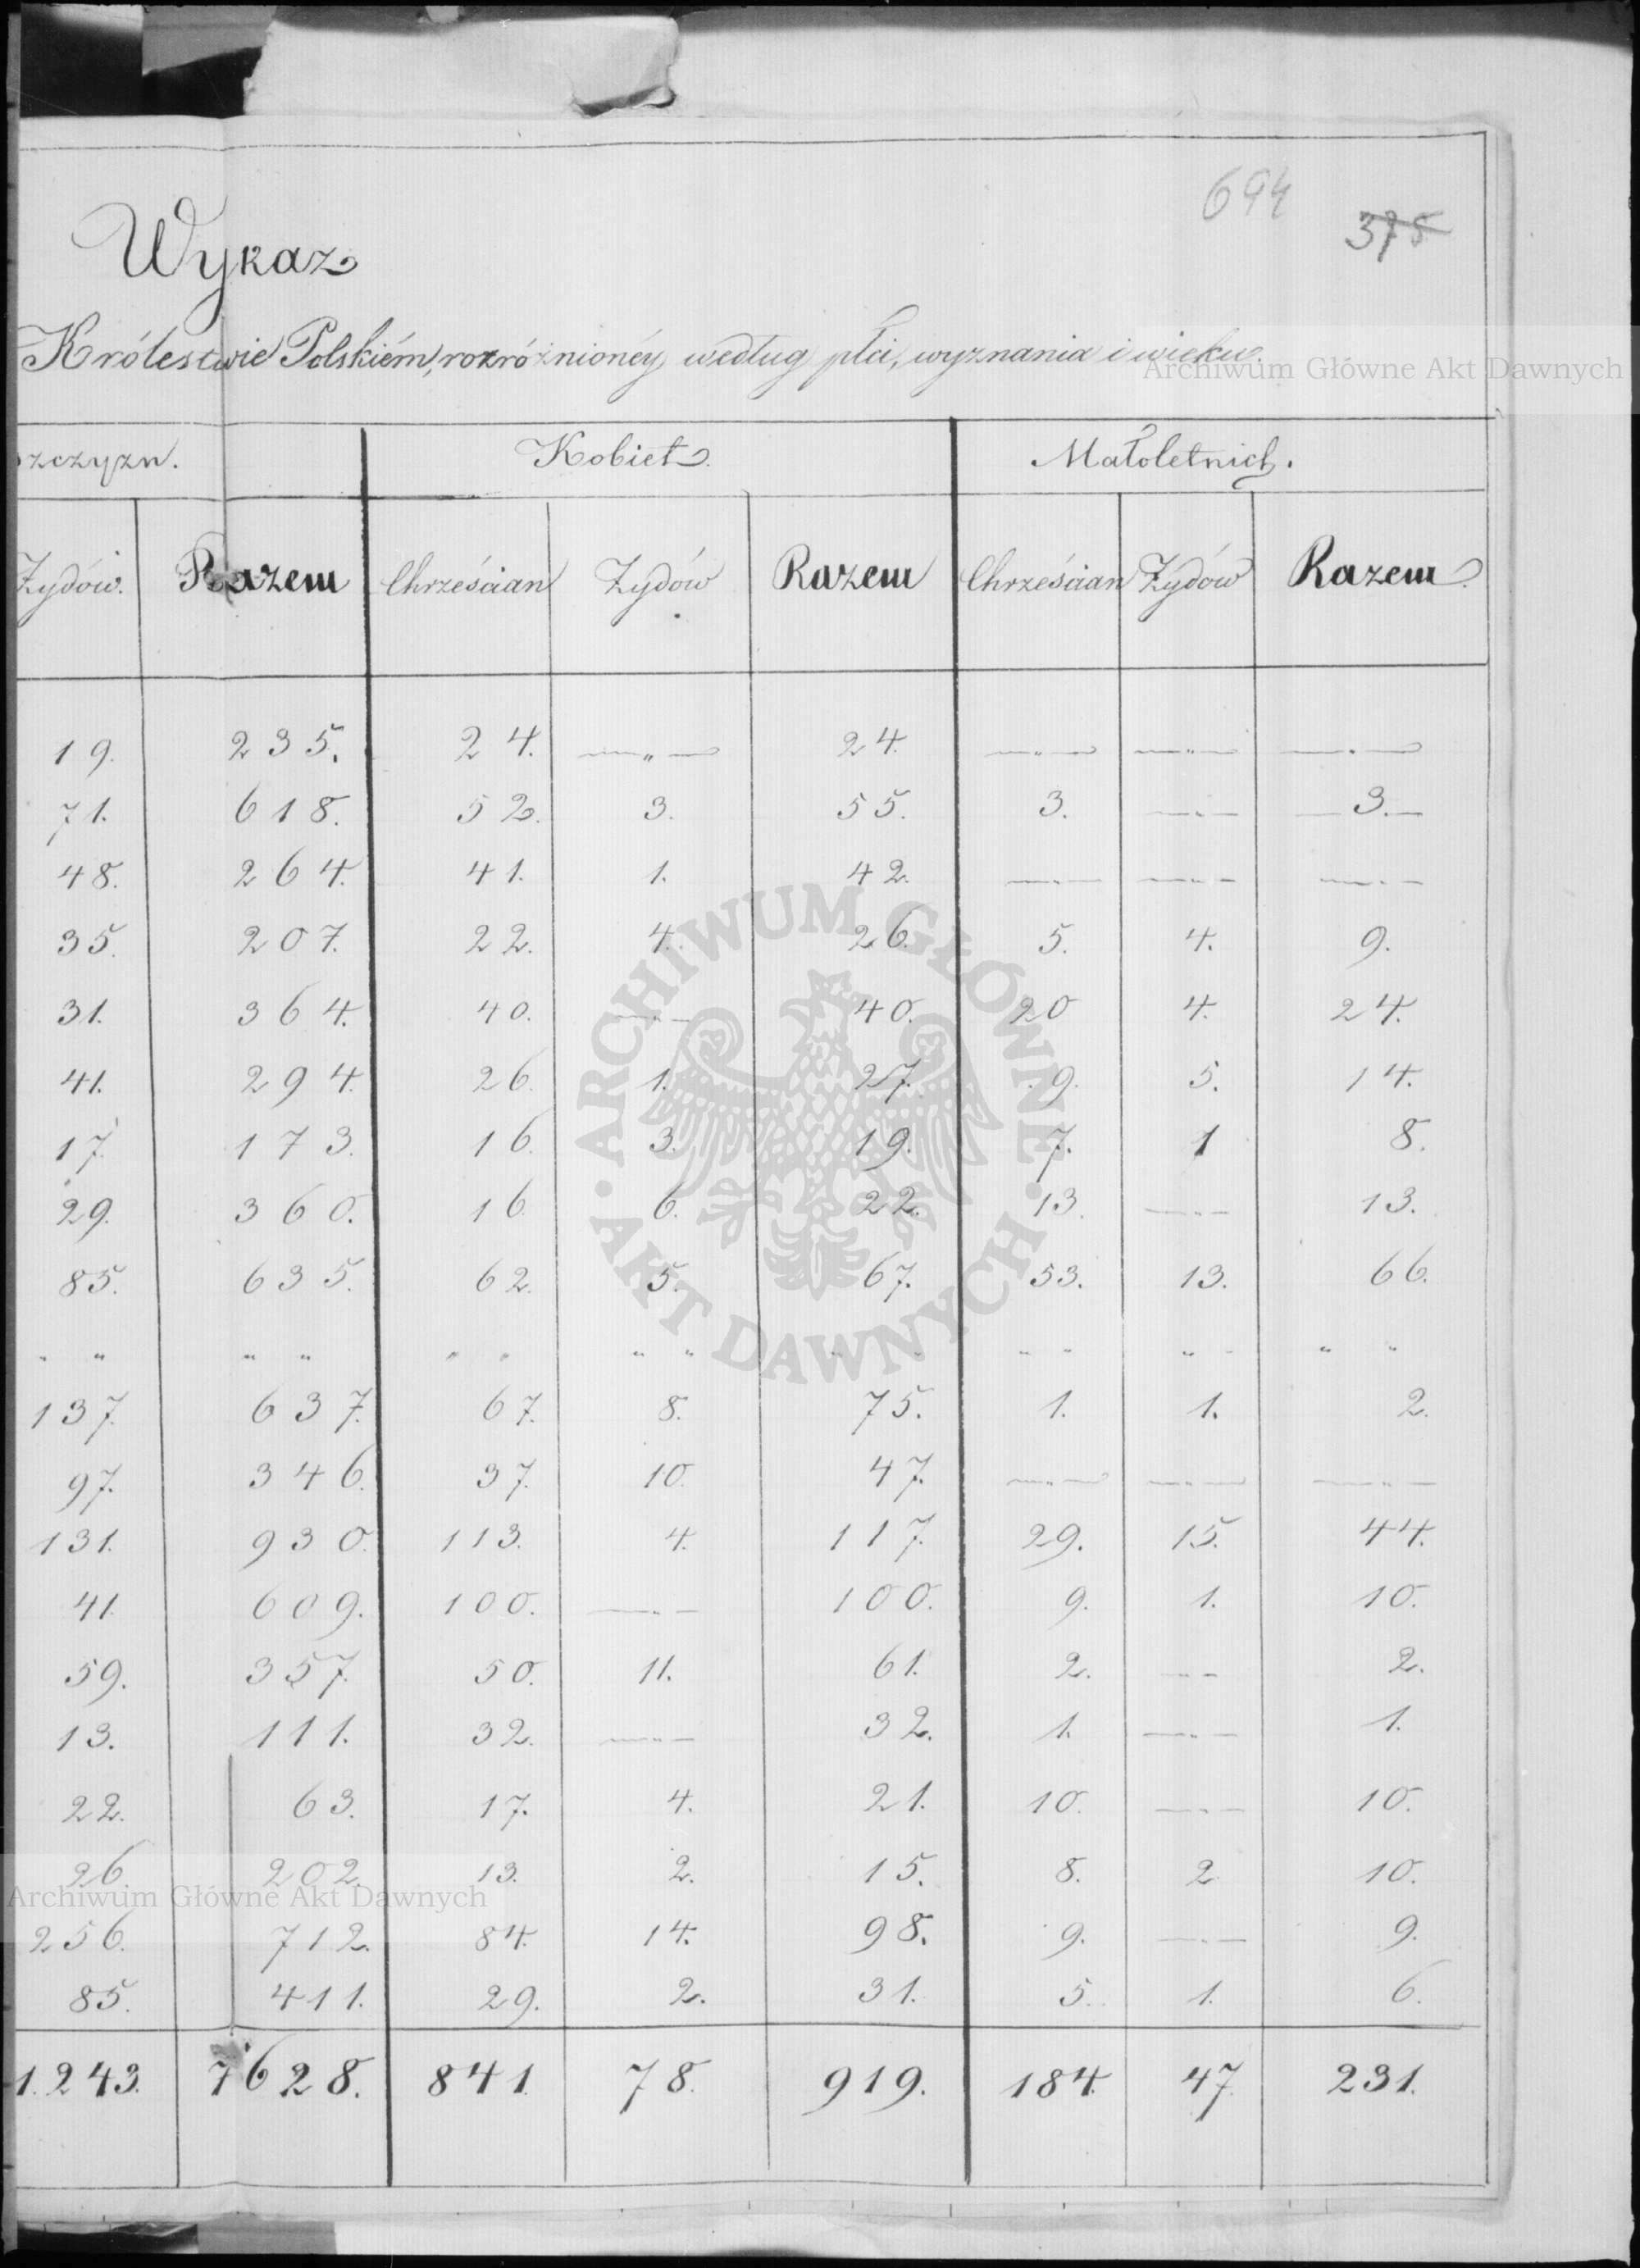 694
375
Wykaz
Królestwie Polskiém, rozróżnionéy według płci, wyznania i wieku.
Archiwum Główne Akt Dawnych
szczyzn. Kobiet. Małoletnich.
Żydów. Razem Chrześcian Żydów Razem Chrześcian Żydów Razem.
19. 235. 24. —„— 24. —„— —„— —„—
71. 618. 52. 3. 55. 3. —„— 3.
48. 264. 41. 1. 42. —„— —„— —„—
35. 207. 22. 4. 26. 5. 4. 9.
31. 364. 40. —„— 40. 20 4. 24.
41. 294. 26. 1. 27. 9. 5. 14.
17. 173. 16. 3. 19. 7. 1 8.
29. 360. 16. 6. 22. 13. —„— 13.
85. 635. 62. 5. 67. 53. 13. 66.
„ „ „ „ „ „ „ „ „ „ „ „ „ „ „ „
137. 637. 67. 8. 75. 1. 1. 2.
97. 346. 37. 10. 47. —„— —„— —„—
131. 930. 113. 4. 117. 29. 15. 44.
41. 609. 100. —„— 100. 9. 1. 10.
59. 357. 50. 11. 61. 2. —„— 2.
13. 111. 32. —„— 32. 1. —„— 1.
22. 63. 17. 4. 21. 10. —„— 10.
26. 202. 13. 2. 15. 8. 2 10.
Archiwum Główne Akt Dawnych
256. 712. 84. 14. 98. 9. —„— 9.
85. 411. 29. 2. 31. 5. 1. 6.
1.243. 7628. 841. 78. 919. 184. 47. 231.
ARCHIWUM GŁÓWNE · AKT DAWNYCH ·